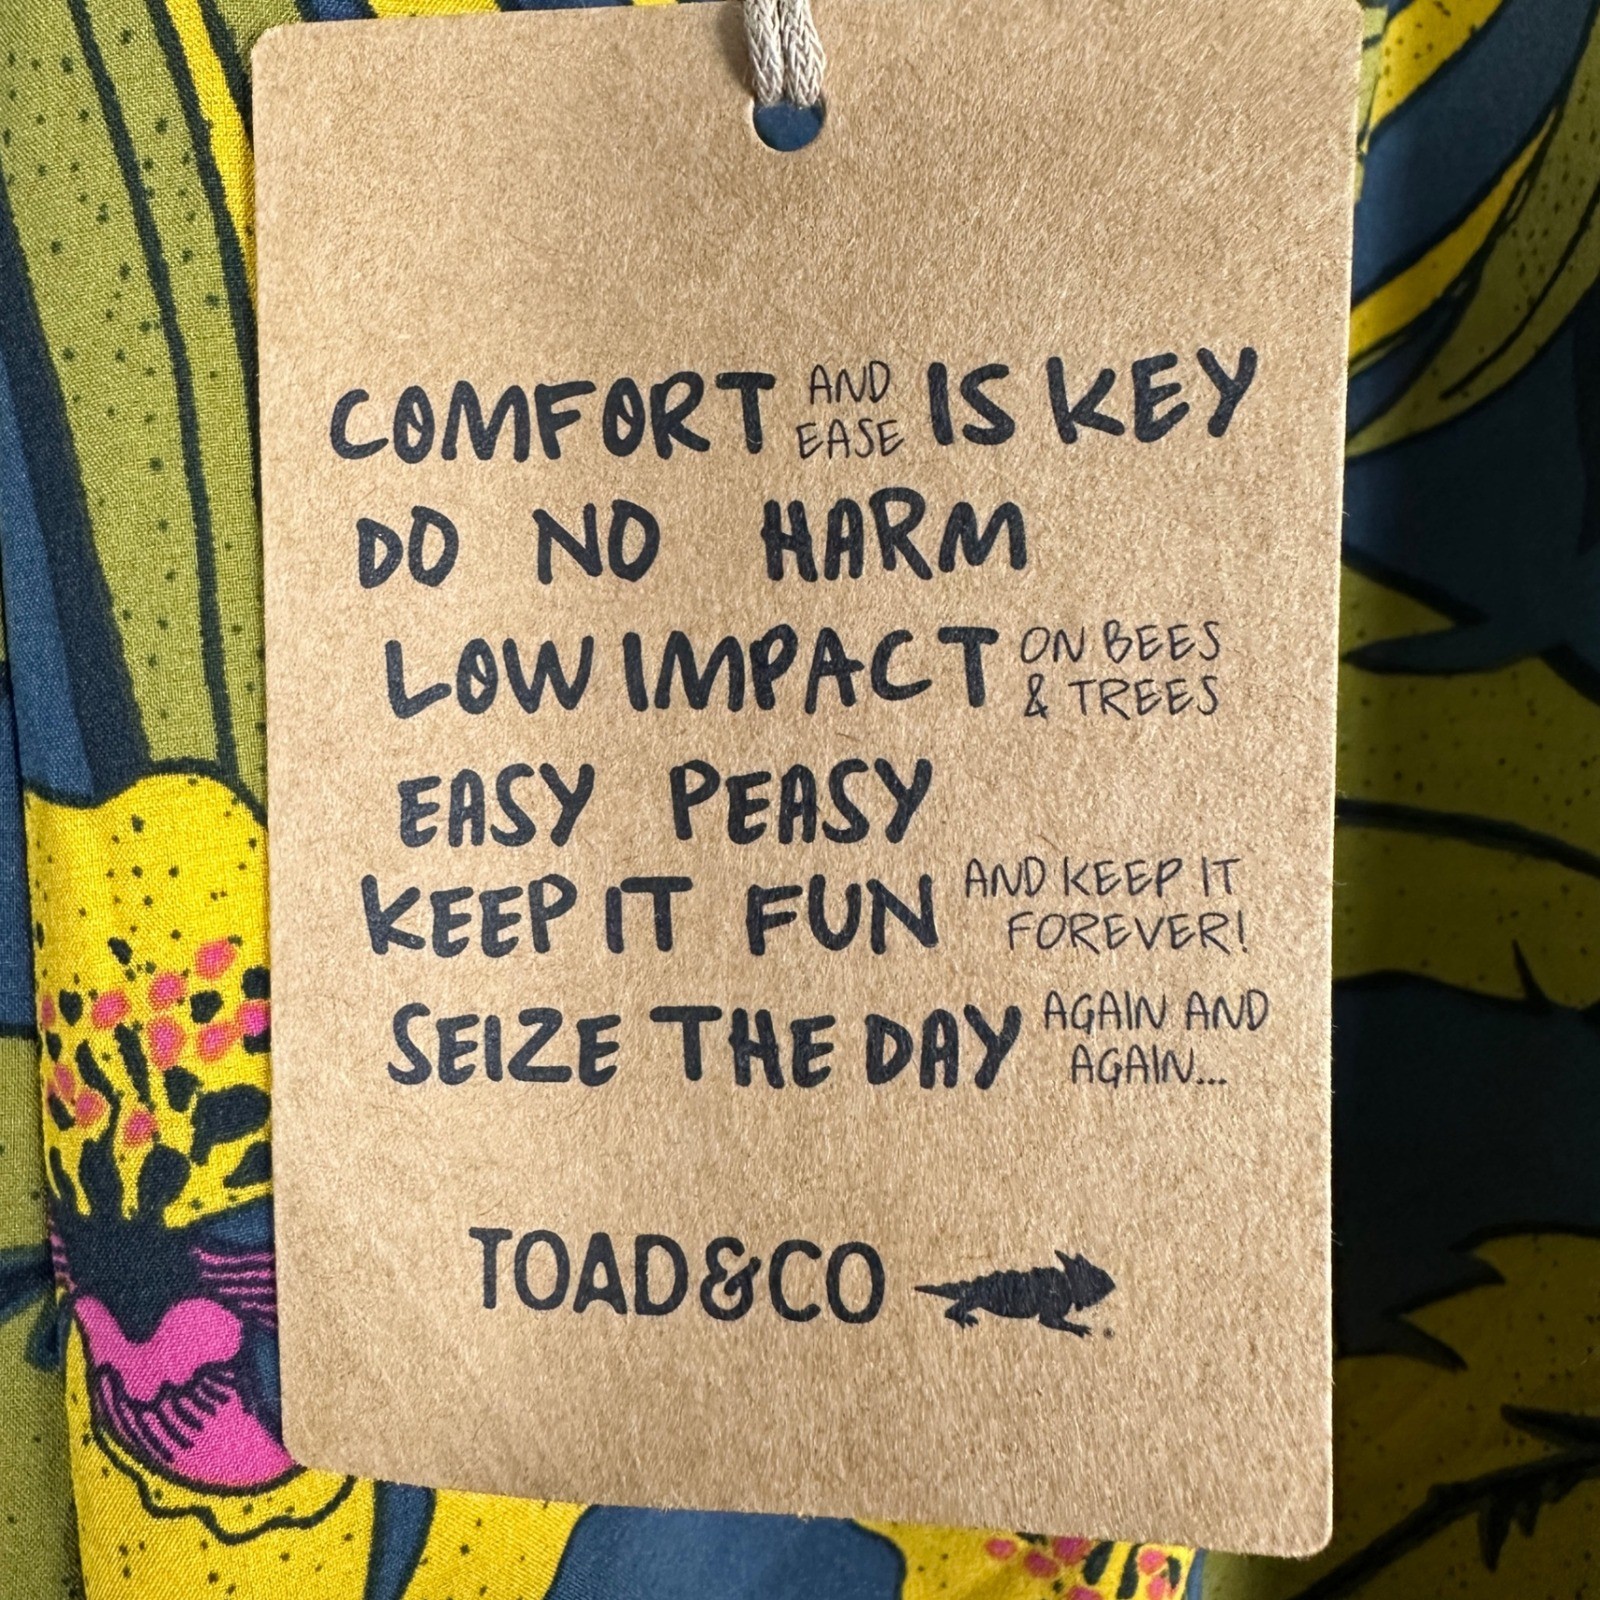 COMFORT AND EASE IS KEY
DO NO HARM
LOW IMPACT ON BEES & TREES
EASY PEASY
KEEP IT FUN AND KEEP IT FOREVER!
SEIZE THE DAY AGAIN AND AGAIN...
TOAD&CO